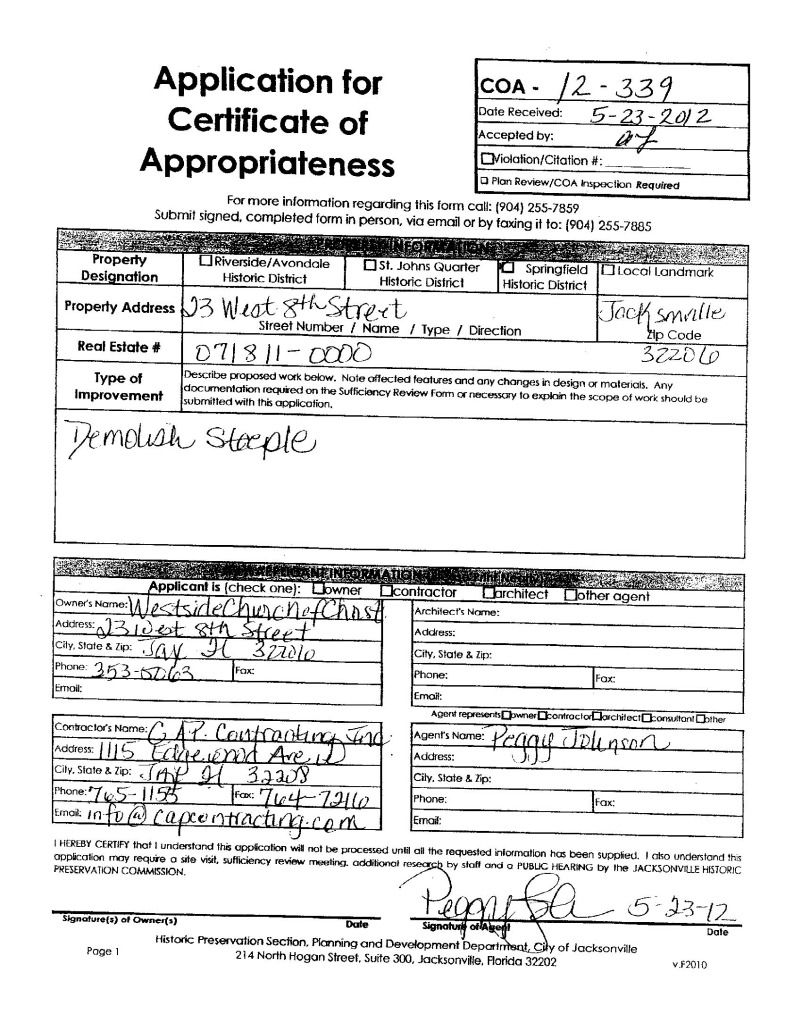 Application for
Certificate of
Appropriateness
COA - 12-339
Date Received: 5-23-2012
Accepted by:
Violation/Citation #:
Plan Review/COA Inspection Required
For more information regarding this form call: (904) 255-7859
Submit signed, completed form in person, via email or by faxing it to: (904) 255-7885
Property Designation
Riverside/Avondale Historic District
St. Johns Quarter Historic District
Springfield Historic District
Local Landmark
Property Address 23 West 8th Street Jacksonville
Street Number / Name / Type / Direction Zip Code
Real Estate # 071811-0000 32206
Type of Improvement
Describe proposed work below. Note affected features and any changes in design or materials. Any
documentation required on the Sufficiency Review Form or necessary to explain the scope of work should be
submitted with this application.
Demolish Steeple
APPLICANT INFORMATION
Applicant is (check one): owner contractor architect other agent
Owner's Name: Westside Church of Christ
Address: 23 West 8th Street
City, State & Zip: Jax Fl 32206
Phone: 353-5063 Fax:
Email:
Architect's Name:
Address:
City, State & Zip:
Phone: Fax:
Email:
Contractor's Name: C.A.P. Contracting Inc
Address: 1115 Edgewood Ave W
City, State & Zip: Jax Fl 32208
Phone: 765-1155 Fax: 764-7216
Email: info@capcontracting.com
Agent represents owner contractor architect consultant other
Agent's Name: Peggy Johnson
Address:
City, State & Zip:
Phone: Fax:
Email:
I HEREBY CERTIFY that I understand this application will not be processed until all the requested information has been supplied. I also understand this
application may require a site visit, sufficiency review meeting, additional research by staff and a PUBLIC HEARING by the JACKSONVILLE HISTORIC
PRESERVATION COMMISSION.
Peggy 5-23-12
Signature(s) of Owner(s) Date Signature of Agent Date
Historic Preservation Section, Planning and Development Department, City of Jacksonville
Page 1 214 North Hogan Street, Suite 300, Jacksonville, Florida 32202 v.F2010